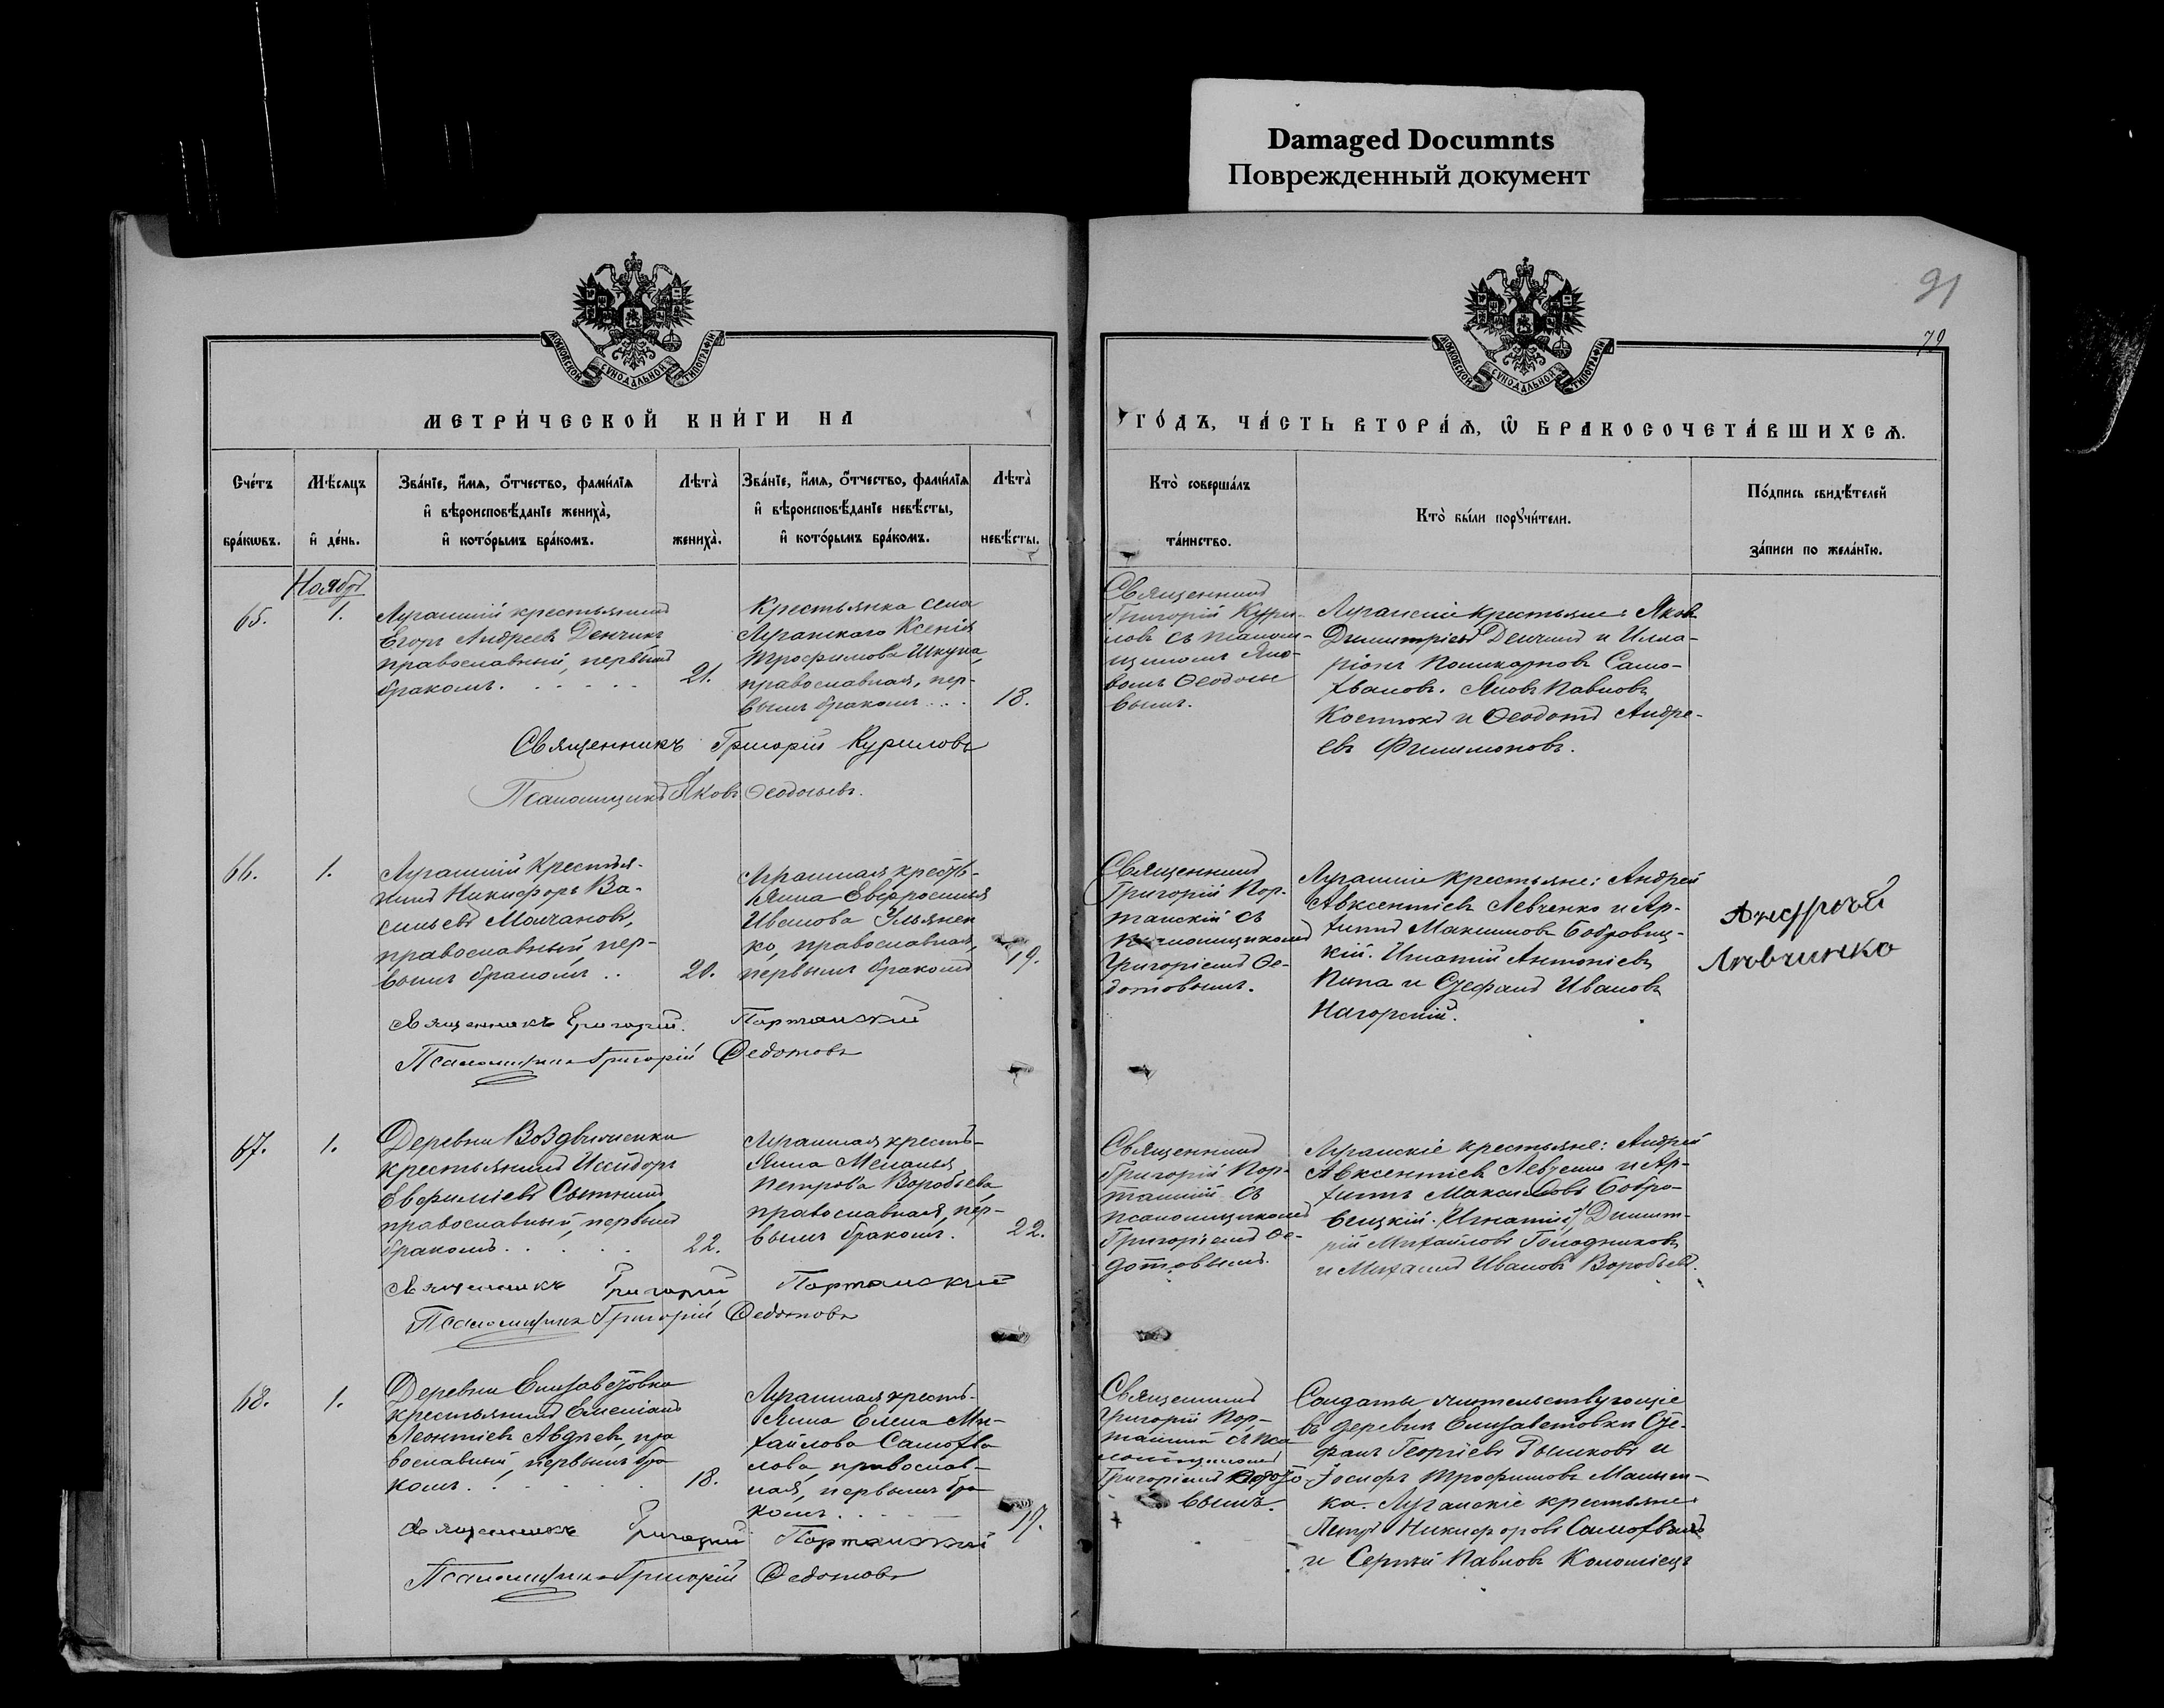 Damaged Documnts
Поврежденный документ
91
79
МОСКОВСКОЙ СѴНОДАЛЬНОЙ ТИПОГРАФІИ
МОСКОВСКОЙ СѴНОДАЛЬНОЙ ТИПОГРАФІИ
МЕТРИ́ЧЕСКОЙ КНИ́ГИ НА
ГО́ДЪ, ЧА́СТЬ ВТОРА́Ѧ, Ѽ БРАКОСОЧЕТА́ВШИХСѦ.
Сче́тъ
бра́кѡвъ.
Мѣ́сяцъ
и҆ де́нь.
Зва́нїе, и҆́мѧ, ѻ҆́тчество, фами́лїѧ
и҆ вѣроисповѣ́данїе жениха̀,
и҆ кото́рымъ бра́комъ.
Лѣта̀
жениха̀.
Зва́нїе, и҆́мѧ, ѻ҆́тчество, фами́лїѧ
и҆ вѣроисповѣ́данїе невѣ́сты,
и҆ кото́рымъ бра́комъ.
Лѣта̀
невѣ́сты.
Кто̀ соверша́лъ
та́инство.
Кто̀ бы́ли порꙋчи́тели.
По́дпись свидѣ́телей
за́писи по жела́нїю.
Ноябрь
65.
1.
Луганскій крестьянинъ
Егоръ Андреевъ Денчикъ
православный, первымъ
бракомъ.
21.
Крестьянка села
Луганскаго Ксенія
Трофимова Шкупа,
православная, пер-
вымъ бракомъ...
18.
Священникъ
Григорій Кури-
ловъ съ псалом-
щикомъ Яко-
вомъ Ѳеодосье
вымъ.
Луганскіе крестьяне: Яковъ
Димитріевъ Денчикъ и Илла-
ріонъ Поликарповъ Само-
хваловъ. Яковъ Павловъ
Костюкъ и Ѳеодотъ Андре-
евъ Филимоновъ.
Священникъ Григорій Куриловъ
Псаломщикъ Яковъ Ѳеодосьевъ.
66.
1.
Луганскій Крестья-
нинъ Никифоръ Ва-
сильевъ Молчановъ,
православный, пер-
вымъ бракомъ ..
20.
Луганская кресть-
янка Евфросинія
Иванова Ульянен
ко, православная,
первымъ бракомъ
19.
Священникъ
Григорій Пор-
танскій съ
псаломщикомъ
Григоріемъ Ѳе-
дотовымъ.
Луганскіе крестьяне: Андрей
Авксентіевъ Левченко и Ар-
хипъ Максимовъ Бобровиц-
кій. Игнатій Антоніевъ
Пипа и Стефанъ Ивановъ
Нагорский.
Андрей
Левченко
Священникъ Григорій Портанский
Псаломщикъ Григорій Ѳедотовъ
67.
1.
Деревни Воздвиженки
крестьянинъ Исидоръ
Евфиміевъ Сытникъ
православный, первымъ
бракомъ.
22.
Луганская кресть-
янка Меланья
Петрова Воробьева
православная, пер-
вымъ бракомъ.
22.
Священникъ
Григорій Пор-
танскій съ
псаломщикомъ
Григоріемъ Ѳе-
дотовымъ.
Луганскіе крестьяне: Андрей
Авксентіевъ Левченко и Ар-
хипъ Максимовъ Бобро-
вицкій. Димит-
рій Михайловъ Голодниковъ
и Михаилъ Ивановъ Воробьевъ.
Священникъ Григорій Портанский
Псаломщикъ Григорій Ѳедотовъ
68.
1.
Деревни Елизаветовки
крестьянинъ Емеліанъ
Леонтіевъ Авдѣевъ, пра
вославный, первымъ бра
комъ.
18.
Луганская кресть-
янка Елена Ми-
хайлова Самохва
лова, православ-
ная, первымъ бра
комъ.
17.
Священникъ
Григорій Пор-
танскій съ пса
ломщикомъ
Григоріемъ Ѳедото-
вымъ.
Солдаты жительствующіе
въ деревни Елизаветовки Сте-
фанъ Георгіевъ и
Іосифъ Трофимовъ
ка. Луганскіе крестьяне
Петръ Никифоровъ Самохваловъ
и Сергѣй Павловъ Коломіецъ
Священникъ Григорій Портанский
Псаломщикъ Григорій Ѳедотовъ